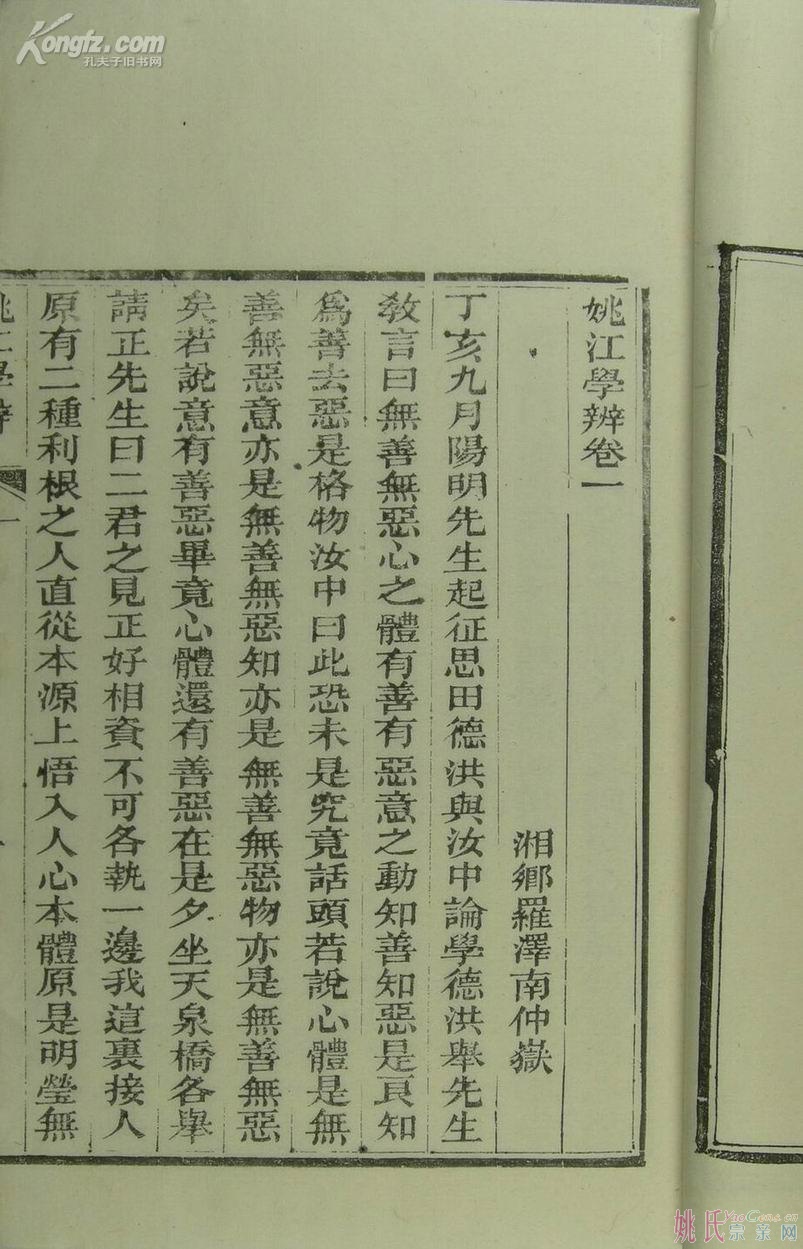 Kongfz.com
孔夫子旧书网
姚江學辨卷一
湘鄉羅澤南仲嶽
丁亥九月陽明先生起征思田德洪與汝中論學德洪舉先生
敎言曰無善無惡心之體有善有惡意之動知善知惡是良知
爲善去惡是格物汝中曰此恐未是究竟話頭若說心體是無
善無惡意亦是無善無惡知亦是無善無惡物亦是無善無惡
矣若說意有善惡畢竟心體還有善惡在是夕坐天泉橋各舉
請正先生曰二君之見正好相資不可各執一邊我這裏接人
原有二種利根之人直從本源上悟入人心本體原是明瑩無
姚江學辨
一
姚氏宗亲网
YaoGens.cn